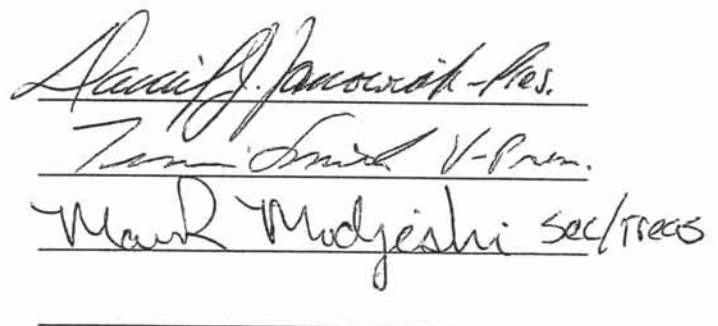 Daniel J. Janowiak - Pres.
Smith V-Pres.
Mark Modjeski Sec/Treas